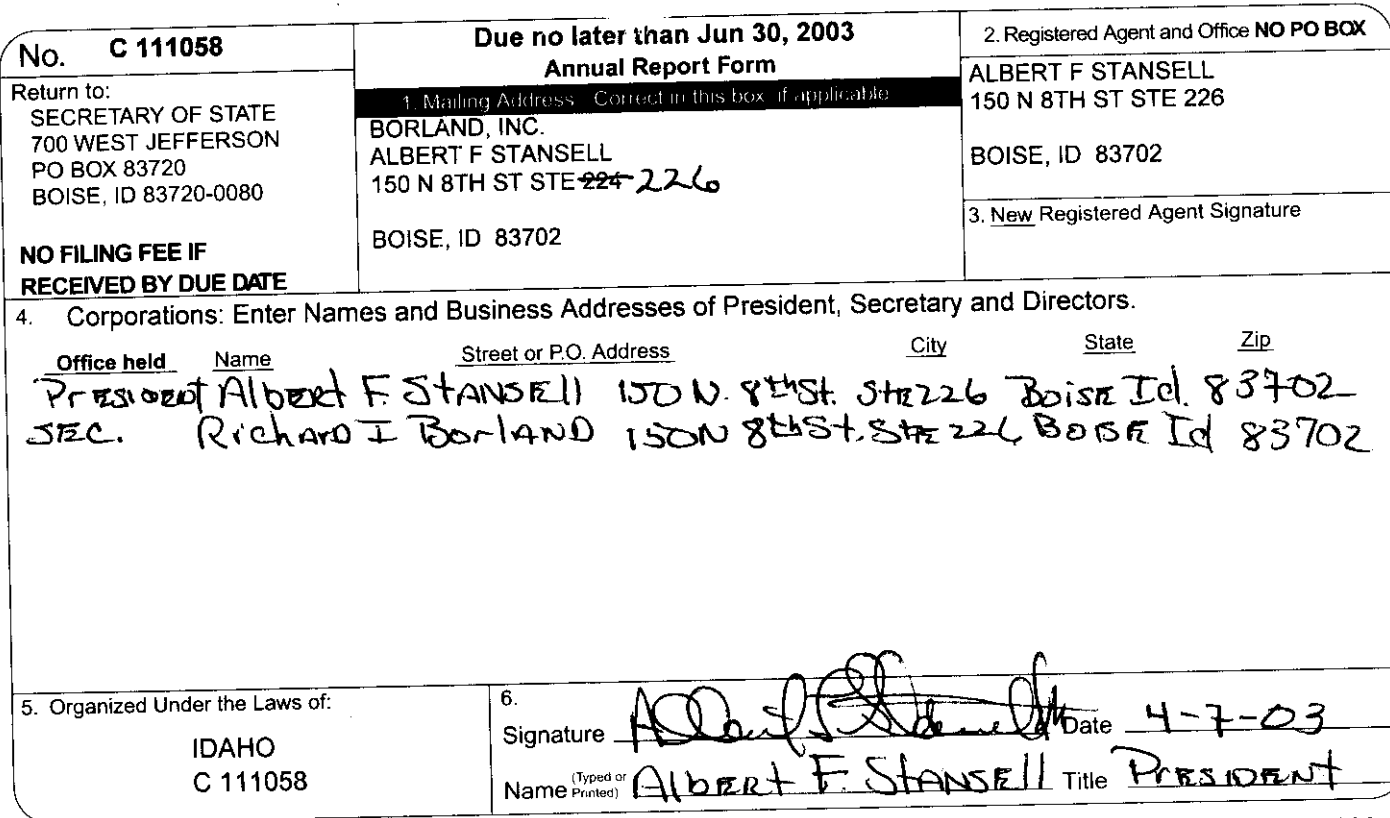 No. C 111058
Return to:
SECRETARY OF STATE
700 WEST JEFFERSON
PO BOX 83720
BOISE, ID 83720-0080
NO FILING FEE IF
RECEIVED BY DUE DATE
Due no later than Jun 30, 2003
Annual Report Form
1. Mailing Address Correct in this box if applicable
BORLAND, INC.
ALBERT F STANSELL
150 N 8TH ST STE 224 226
BOISE, ID 83702
2. Registered Agent and Office NO PO BOX
ALBERT F STANSELL
150 N 8TH ST STE 226
BOISE, ID 83702
3. New Registered Agent Signature
4. Corporations: Enter Names and Business Addresses of President, Secretary and Directors.
Office held Name Street or P.O. Address City State Zip
President Albert F. Stansell 150 N. 8th St. Ste 226 Boise Id. 83702
SEC. Richard I Borland 150 N 8th St. Ste 226 Boise Id 83702
5. Organized Under the Laws of:
IDAHO
C 111058
6.
Signature Date 4-7-03
Name (Typed or Printed) Albert F. Stansell Title President